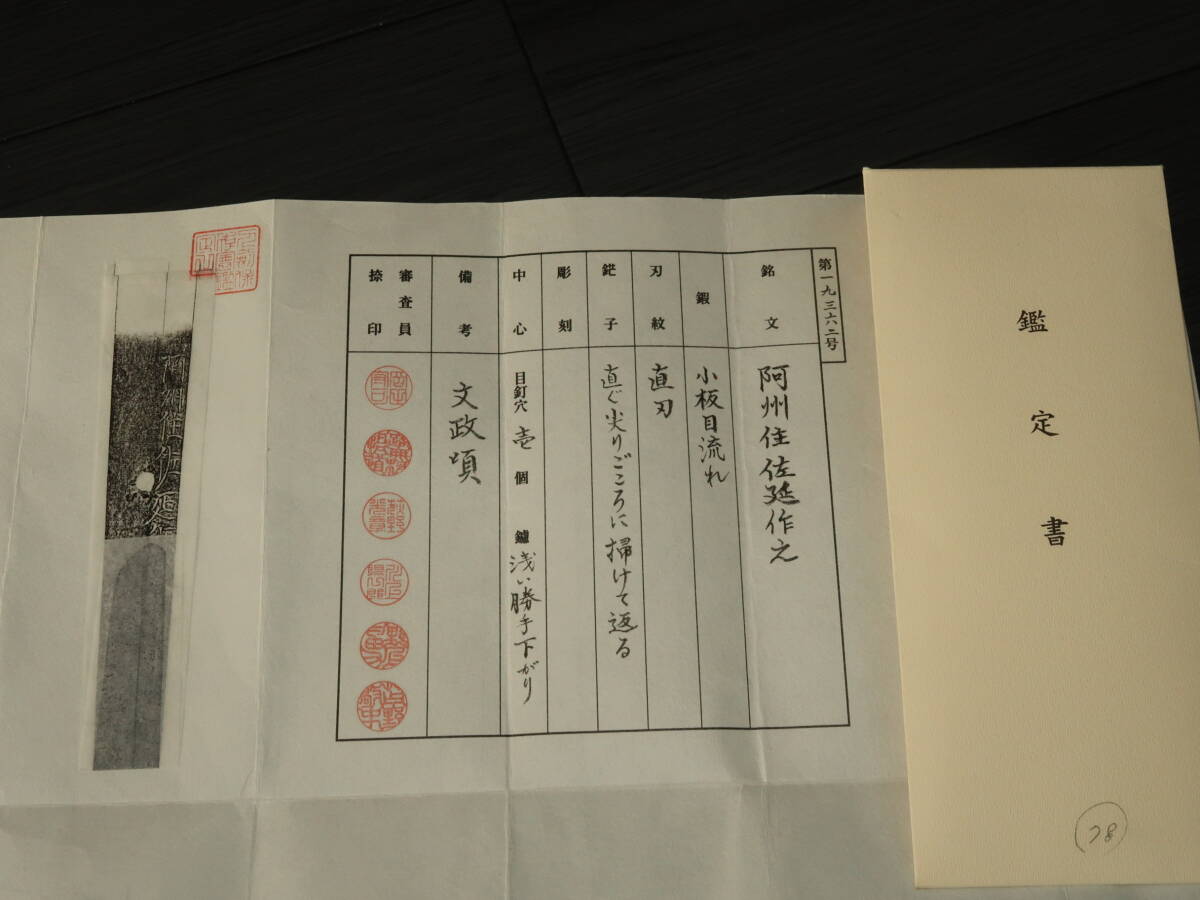 鑑定書
78
第一九三六二号
銘文
阿州住佐延作之
鍜
小板目流れ
刃紋
直刃
鋩子
直ぐ尖りごころに掃けて返る
彫刻
中心
目釘穴 壱 個 鑢 浅い勝手下がり
備考
文政頃
審査員
捺印
阿州住佐延作